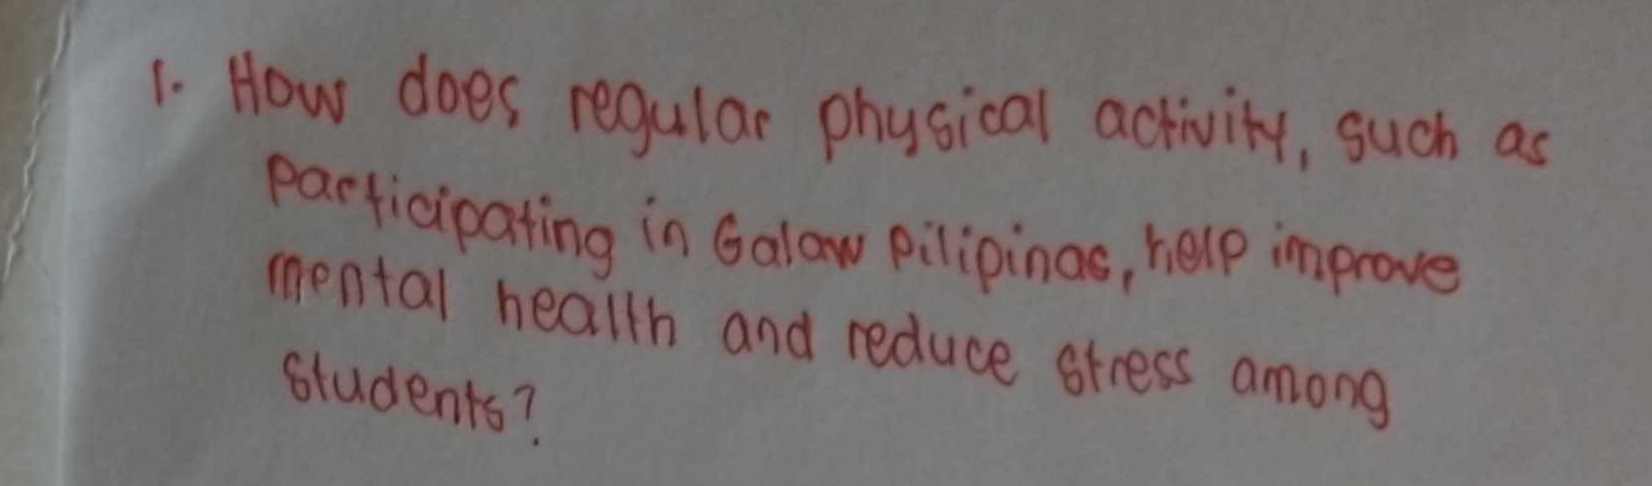 1. How does regular physical activity, such as
participating in Galaw Pilipinas, help improve
mental health and reduce stress among
students?